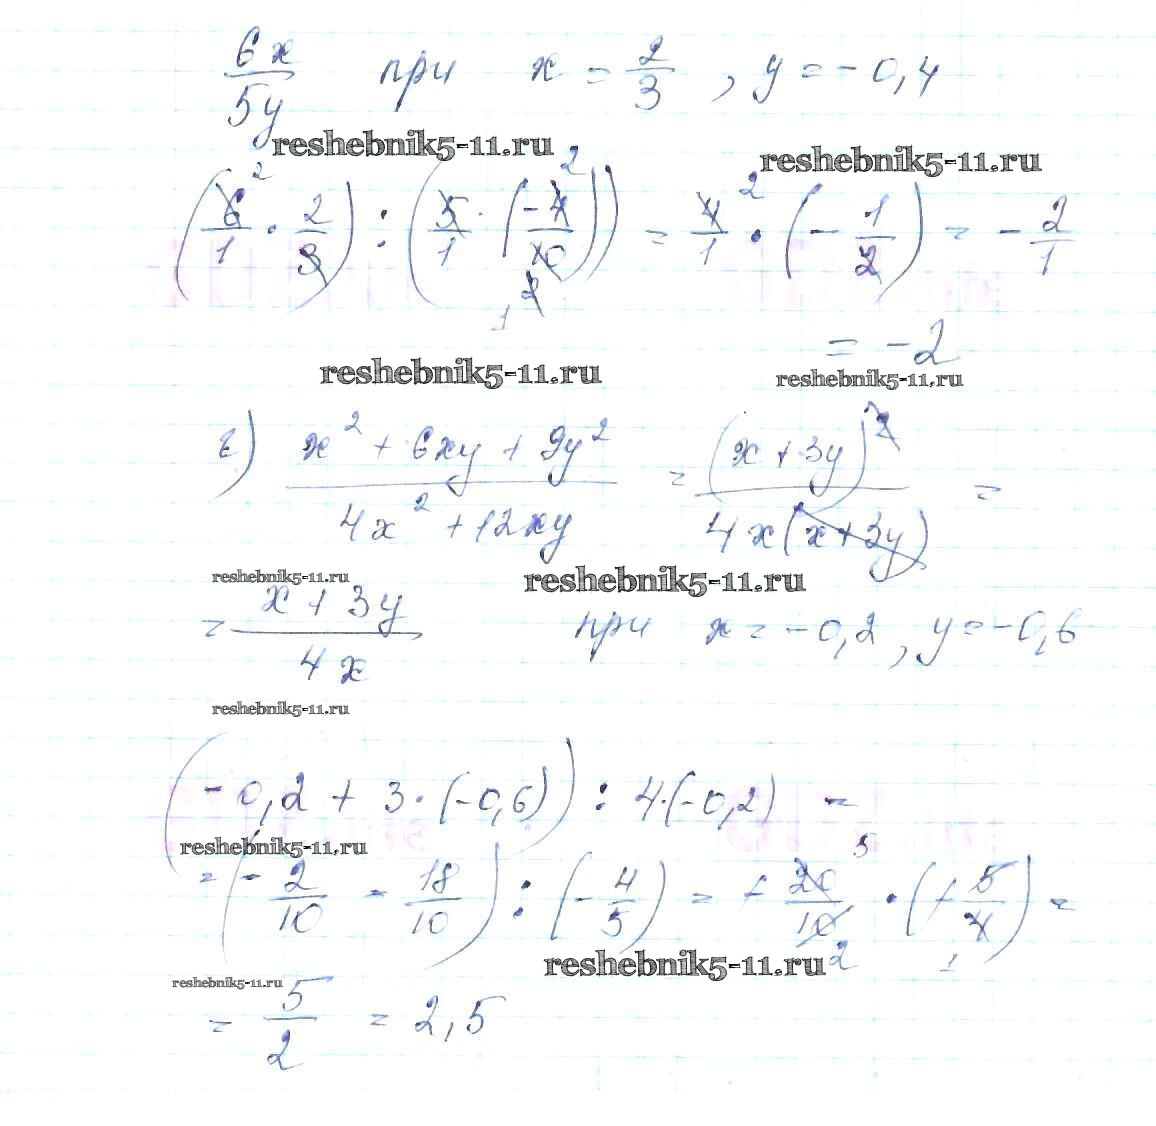 6x/5y при x = 2/3 , y = -0,4
reshebnik5-11.ru
reshebnik5-11.ru
(6/1 · 2/3) : (5/1 · (-4/10)) = 4/1 · (-1/2) = -2/1
= -2
reshebnik5-11.ru
reshebnik5-11.ru
г) (x² + 6xy + 9y²)/(4x² + 12xy) = (x + 3y)²/(4x(x + 3y)) =
reshebnik5-11.ru
reshebnik5-11.ru
= (x + 3y)/4x при x = -0,2 , y = -0,6
reshebnik5-11.ru
(-0,2 + 3 · (-0,6)) : 4·(-0,2) =
reshebnik5-11.ru
= (-2/10 - 18/10) : (-4/5) = + 20/10 · (+ 5/4) =
reshebnik5-11.ru
reshebnik5-11.ru
= 5/2 = 2,5